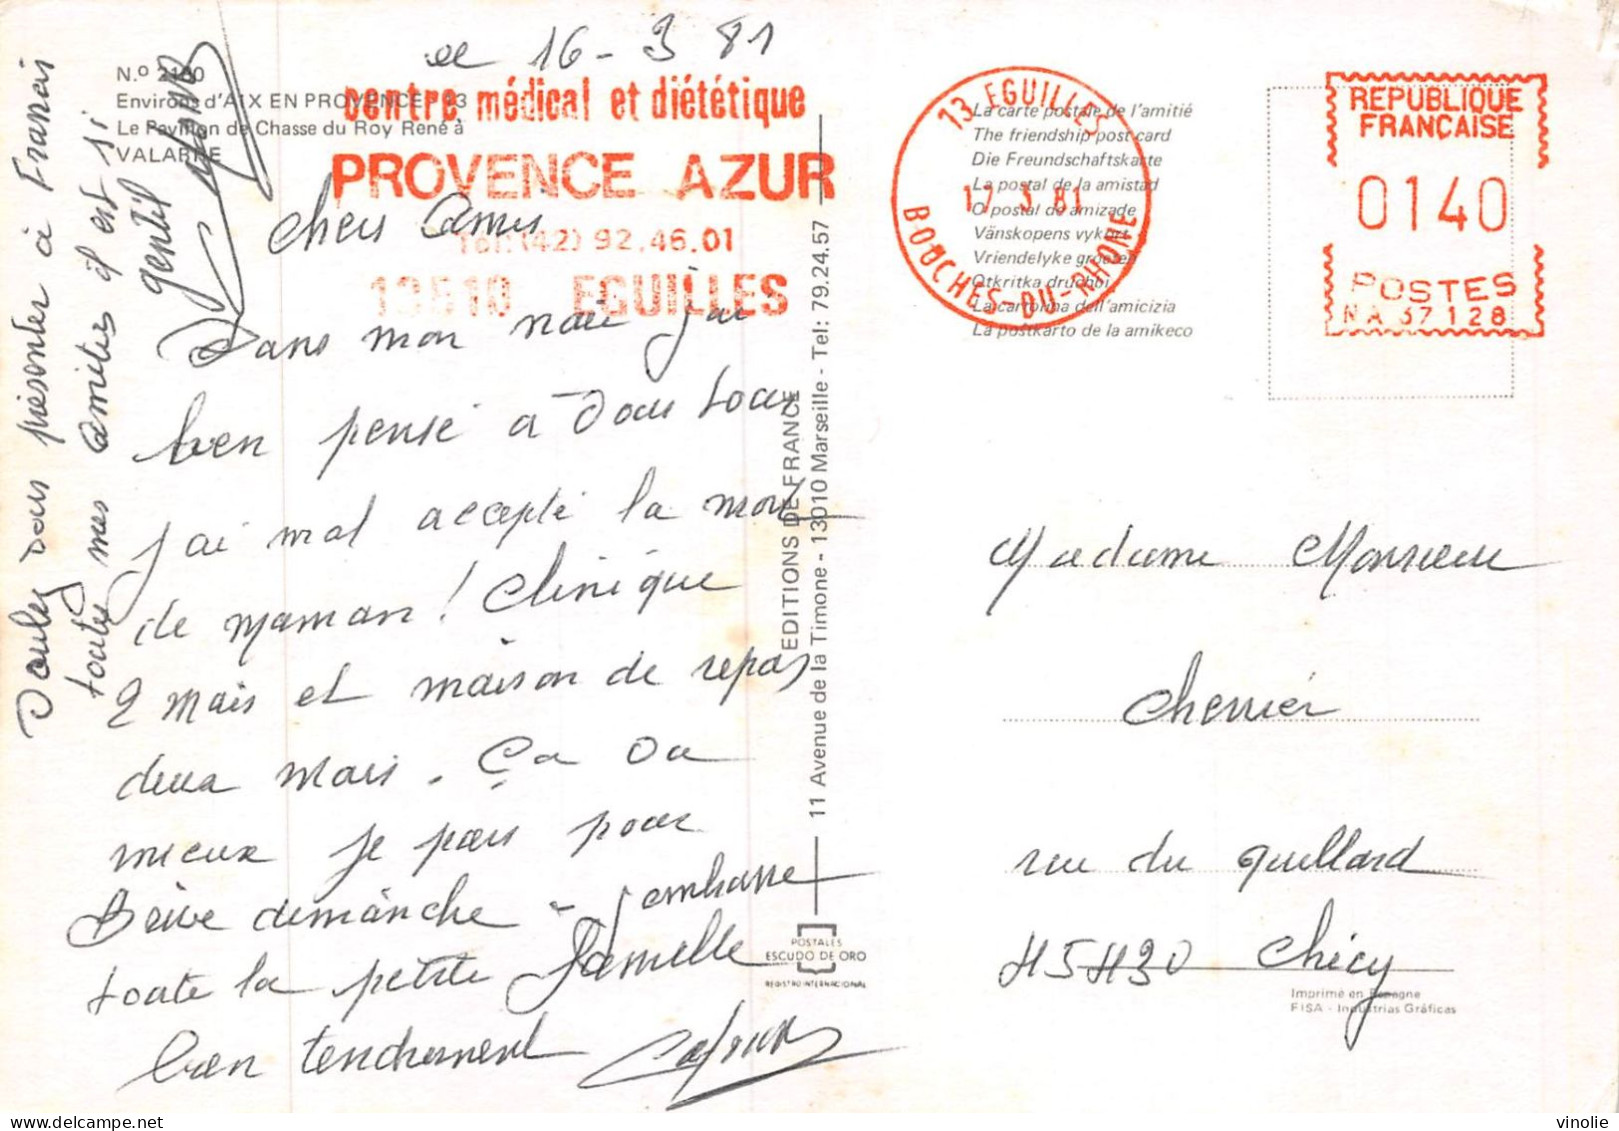 le 16-3 81
N.º 2160
Environs d'AIX EN PROVENCE - 13
Le Pavillon de Chasse du Roy René à
VALABRE
centre médical et diététique
PROVENCE AZUR
Tél: (42) 92.46.01
13510 EGUILLES
Chers Amis
Dans mon j'ai
bien pensé à Vous tous
J'ai mal accepté la mort
de maman! Clinique
2 mois et maison de repos
deux mois. Ça va
mieux je pars pour
Brive dimanche - J'embrasse
toute la petite famille
bien tendrement
Voulez vous présenter à Francis
toutes mes amitiés il est si
gentil
EDITIONS DE FRANCE
11 Avenue de la Timone - 13010 Marseille - Tel: 79.24.57
POSTALES
ESCUDO DE ORO
REGISTRO INTERNACIONAL
13 EGUILLES
17 3 81
BOUCHES-DU-RHONE
La carte postale de l'amitié
The friendship post card
Die Freundschaftskarte
La postal de la amistad
O postal da amizade
Vänskopens vykort
Vriendelyke groeten
Otkritka druchbi
La cartolina dell'amicizia
La postkarto de la amikeco
REPUBLIQUE
FRANÇAISE
0140
POSTES
NA 37128
Madame Monsieur
Cherrier
rue du Quillard
45430 Chécy
Imprimé en Espagne
FISA - Industrias Gráficas
vinolie